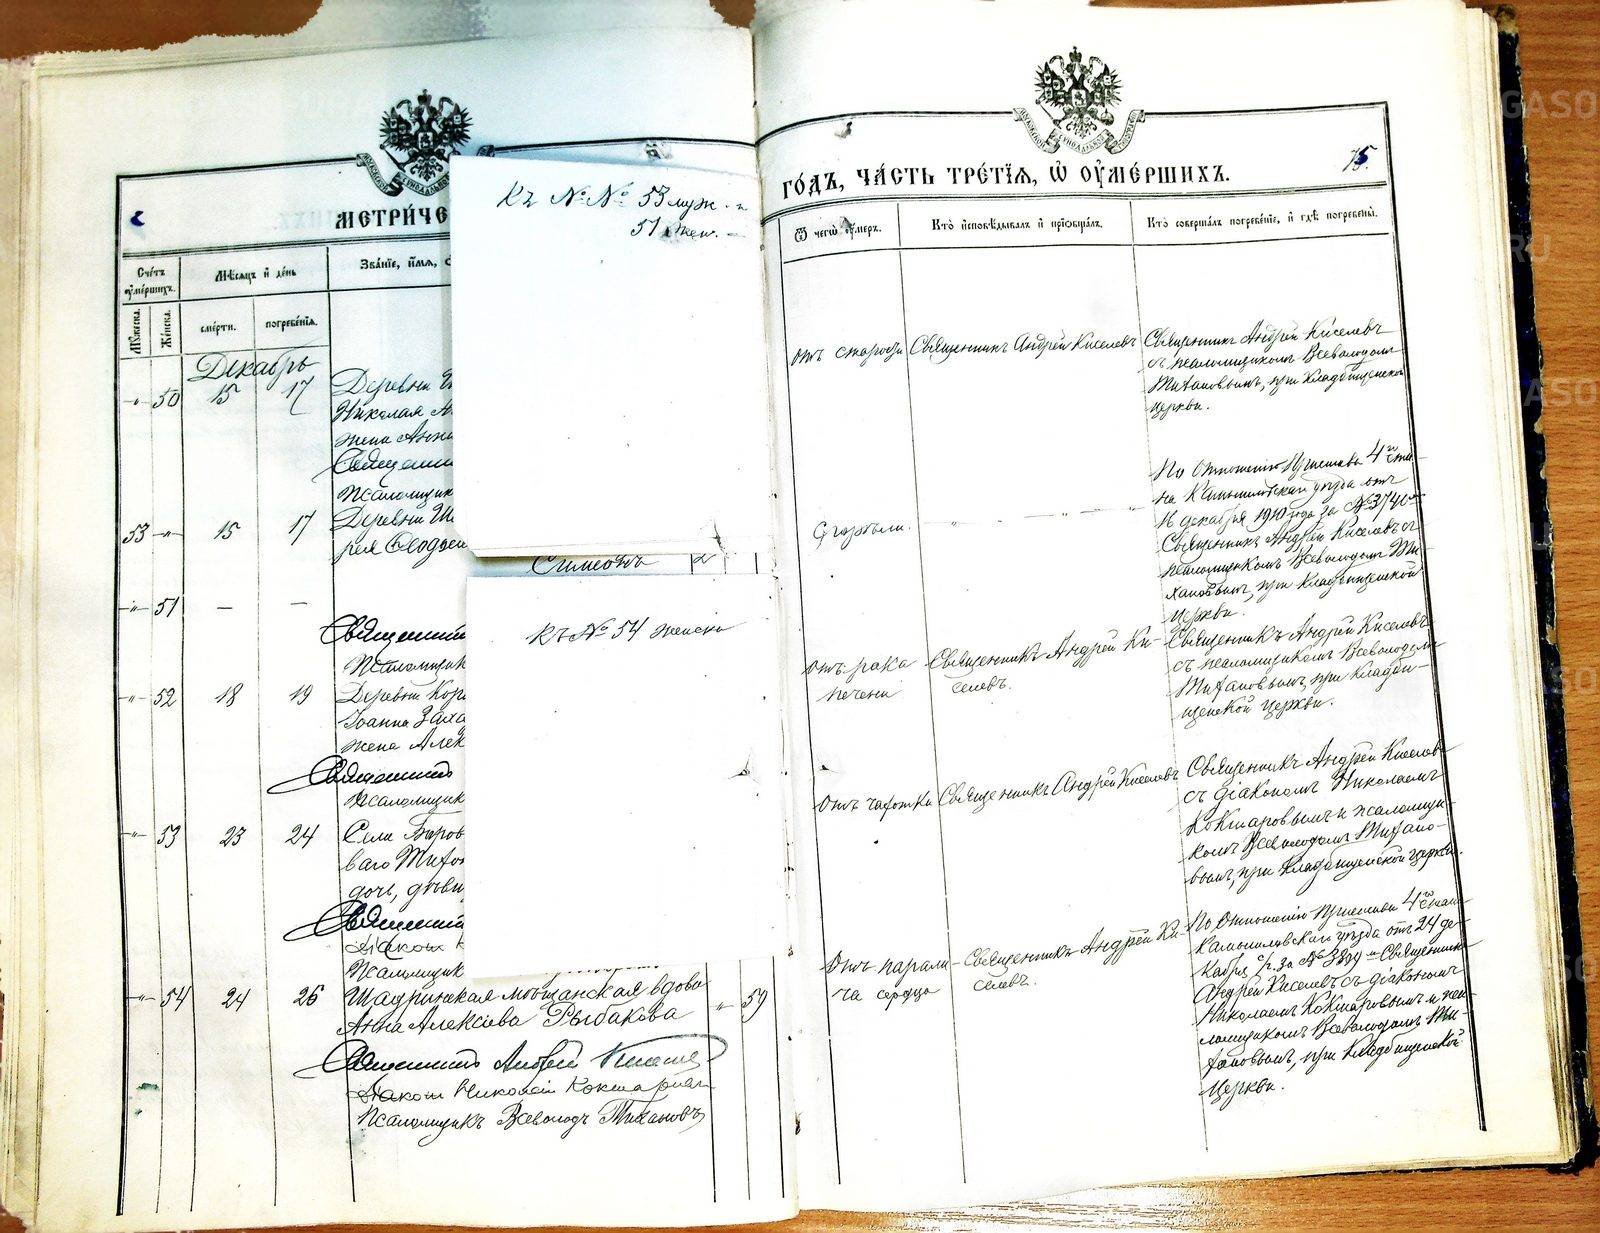 МЕТРИ́ЧЕ
Счетъ оумершихъ.
Мѣсяцъ и день
Зва́нїе, и́мѧ,
Мꙋжеска.
Женска.
сме́рти.
погребе́нїѧ.
Декабрь
-"- 50 15 17 Деревни
Николая
жена Анна
Священни
Псаломщик
53 -"- 15 17 Деревни
рея Ѳеодос
-"- 51 — —
Священни
Псаломщик
-"- 52 18 19 Деревни Кор
Іоанна Заха
жена Алек
Священни
Псаломщик
-"- 53 23 24 Села
ваго Тихо
дочь, дѣви
Священни
Діакон
Псаломщик
-"- 54 24 26 Шадринская мѣщанская вдова " 59
Анна Алексіева Рыбакова
Священникъ Андрей Киселев
Діакон Николай Кокшаров
Псаломщикъ Всеволодъ Тихановъ
Къ №№ 53 муж. и
51 жен. —
Симеонъ 2
къ № 54 женска
ГО́ДЪ, ЧА́СТЬ ТРЕ́ТЇѦ, Ѡ ОУМЕ́РШИХЪ.
75.
Ѿ чегѡ оумеръ.
Кто̀ и҆сповѣдывалъ и҆ прїобщалъ.
Кто̀ соверша́лъ погребе́нїе, и҆ гдѣ̀ погребены̀.
отъ старости Священникъ Андрей Киселевъ Священникъ Андрей Киселевъ
съ псаломщикомъ Всеволодомъ
Тихановымъ, при кладбищенской
церкви.
По отношенію Пристава 4го ста-
на Камышловскаго уѣзда отъ
16 декабря 1910 года за № 3740
Сгорѣли. — " — " — "
Священникъ Андрей Киселевъ съ
псаломщикомъ Всеволодомъ Ти-
хановымъ, при кладбищенской
церкви.
Отъ рака Священникъ Андрей Ки- Священникъ Андрей Киселевъ
печени селевъ. съ псаломщикомъ Всеволодомъ
Тихановымъ, при кладби-
щенской церкви.
Отъ чахотки Священникъ Андрей Киселевъ Священникъ Андрей Киселевъ
съ діакономъ Николаемъ
Кокшаровымъ и псаломщи-
комъ Всеволодомъ Тихано-
вымъ, при кладбищенской церкви.
По отношенію Пристава 4го стана
Камышловскаго уѣзда отъ 24 де-
кабря с/г. за № 3809 Священникъ
Отъ парали- Священникъ Андрей Ки- Андрей Киселевъ съ діакономъ
ча сердца селевъ. Николаемъ Кокшаровымъ и пса-
ломщикомъ Всеволодомъ Ти-
хановымъ, при кладбищенской
церкви.